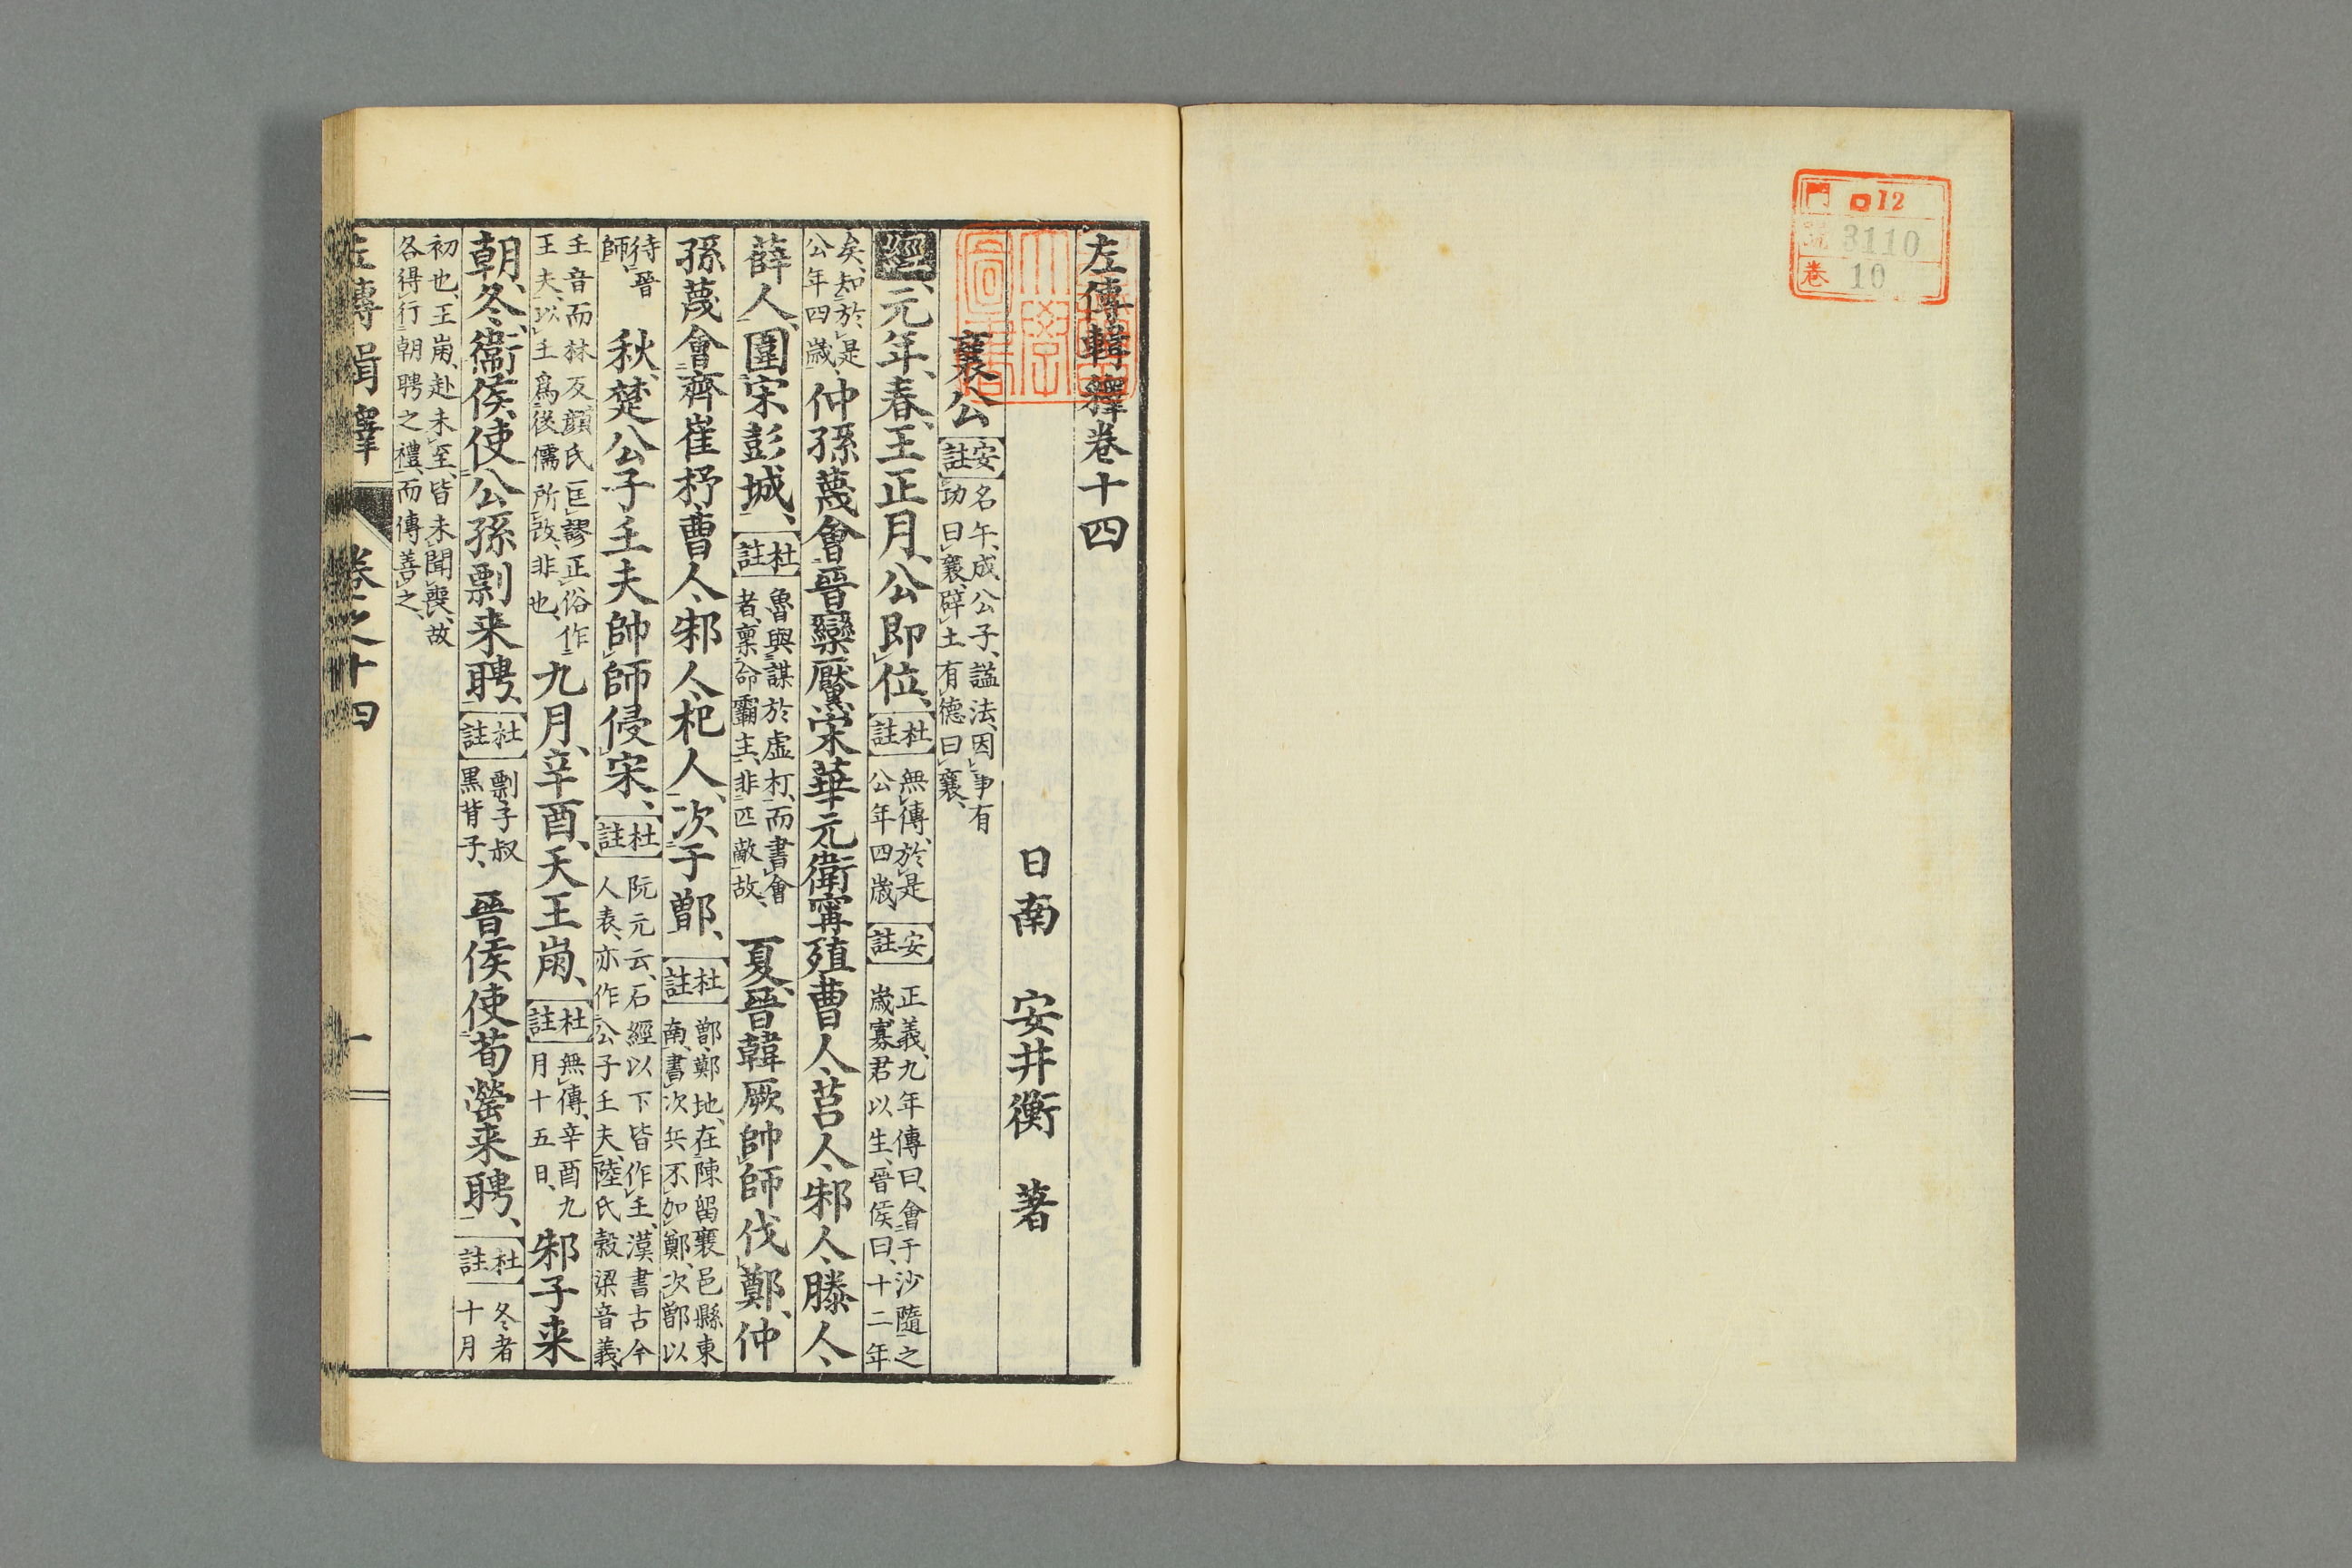 門 ロ12
號 3110
卷 10
左傳輯釋卷十四
日南 安井衡 著
襄公 安註 名午、成公子、謚法、因事有功曰襄、辟土有德曰襄、
經、元年、春、王正月、公即位、杜註 無傳、於是公年四歲、安註 正義、九年傳曰、會于沙隨之歲寡君以生、晉侯曰、十二年
矣、知於是公年四歲、仲孫蔑會晉欒黶宋華元衛甯殖曹人、莒人、邾人、滕人、
薛人、圍宋彭城、杜註 魯與謀於虛朾、而書會者、稟命霸主、非匹敵故、夏、晉韓厥帥師伐鄭、仲
孫蔑會齊崔杼、曹人、邾人、杞人、次于鄫、杜註 鄫、鄭地、在陳留襄邑縣東南、書次兵不加鄭、次鄫以
待晉師、秋、楚公子壬夫帥師侵宋、杜註 阮元云、石經以下皆作壬、漢書古今人表、亦作公子壬夫、陸氏穀梁音義、
壬音而林反、顏氏匡謬正俗作王夫、以壬爲後儒所改、非也、九月、辛酉、天王崩、杜註 無傳、辛酉九月十五日、邾子来
朝、冬、衞侯使公孫剽来聘、杜註 剽子叔黑背子、晉侯使荀罃来聘、杜註 冬者十月
初也、王崩、赴未至、皆未聞喪、故各得行朝聘之禮、而傳善之、
左傳輯釋 卷之十四 一